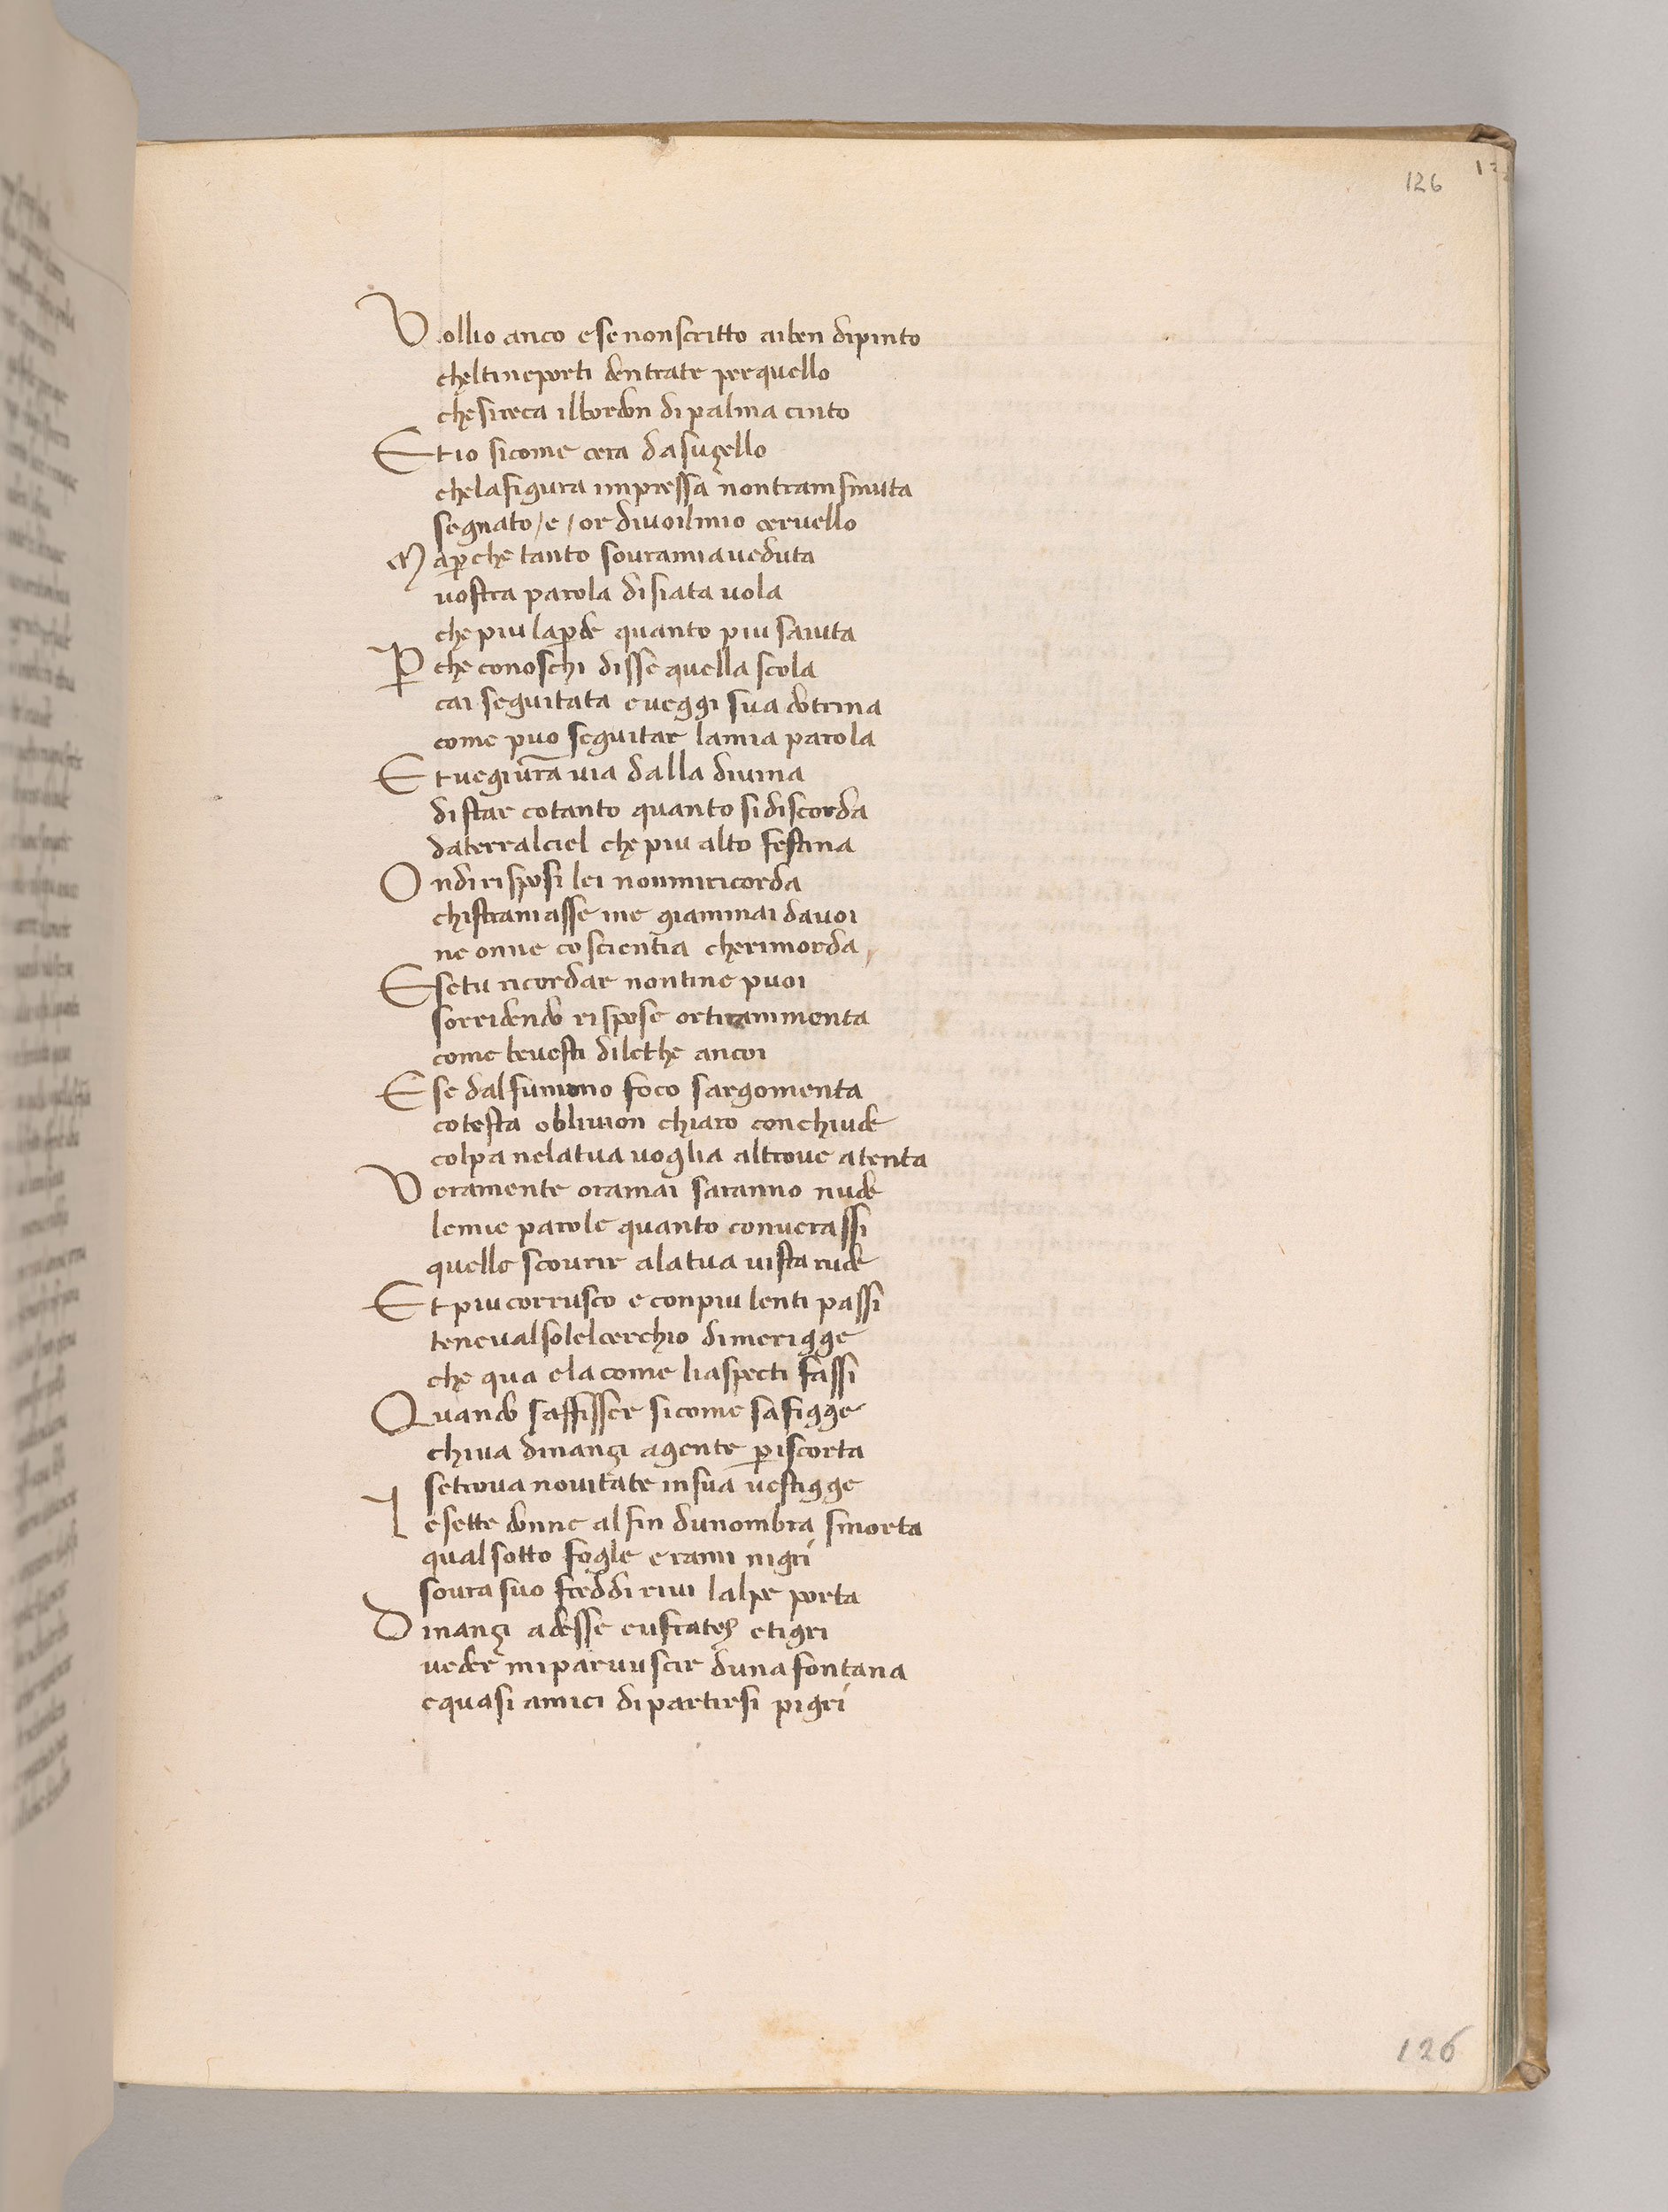 126
Vollio anco e se non scritto aiben dipinto
cheltineporti dentrate perquello
chesireca ilbordon dipalma cinto
Et io sicome cera dasugello
chelafigura impressa nontramsmuta
segnato / e / or diuoilmio ceruello
Map̱che tanto souramiaueduta
uostra parola disiata uola
che piu lap̱de quanto piu saiuta
P̱che conoschi disse quella scola
cai seguitata eueggi sua dotrina
come puo seguitar lamia parola
Etuegiur̃a uia dalla diuina
distar cotanto quanto sidiscorda
daterralciel che piu alto festina
Ondirisposi lei nonmiricorda
chistraniasse me giammai dauoi
ne onne coscientia cherimorda
Esetu ricordar nontine puoi
sorridendo rispose ortirammenta
come beuesti dilethe ancoi
Ese dalfummo foco sargomenta
cotesta obliuion chiaro conchiude
colpa nelatua uoglia altroue atenta
Veramente oramai saranno nude
lemie parole quanto conuerassi
quelle scourir alatua uista rude
Et piu corrusco e conpiu lenti passi
teneualsolelcerchio dimerigge
che qua elacome liaspecti fassi
Quando saffisser sicome safigge
chiua dinanzi agente p̱iscorta
setroua nouitate insua uestigge
Iesette donne alfin dunombra smorta
qualsotto fogle erami nigri
soura suo freddi riui lalpe porta
Dinanzi adesse eufrates etigri
ueder miparuuscir dunafontana
equasi amici dipartirsi pigri
126